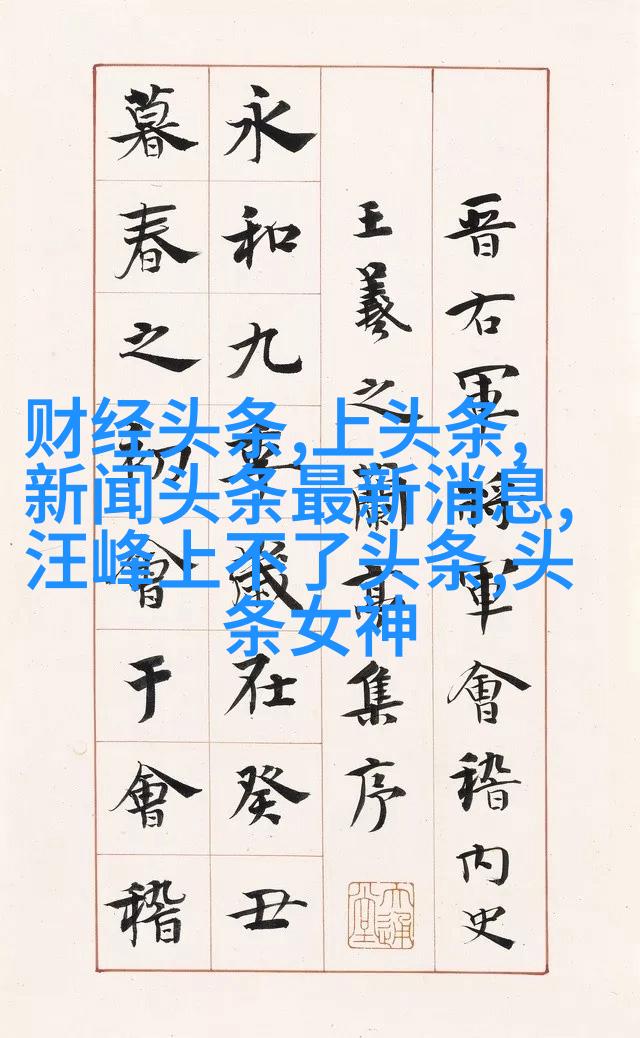 晋右軍將軍會稽内史
王羲之蘭亭集序
永和九年歲在癸丑
暮春之初會于會稽
财经头条,上头条,
新闻头条最新消息,
汪峰上不了头条,头
条女神